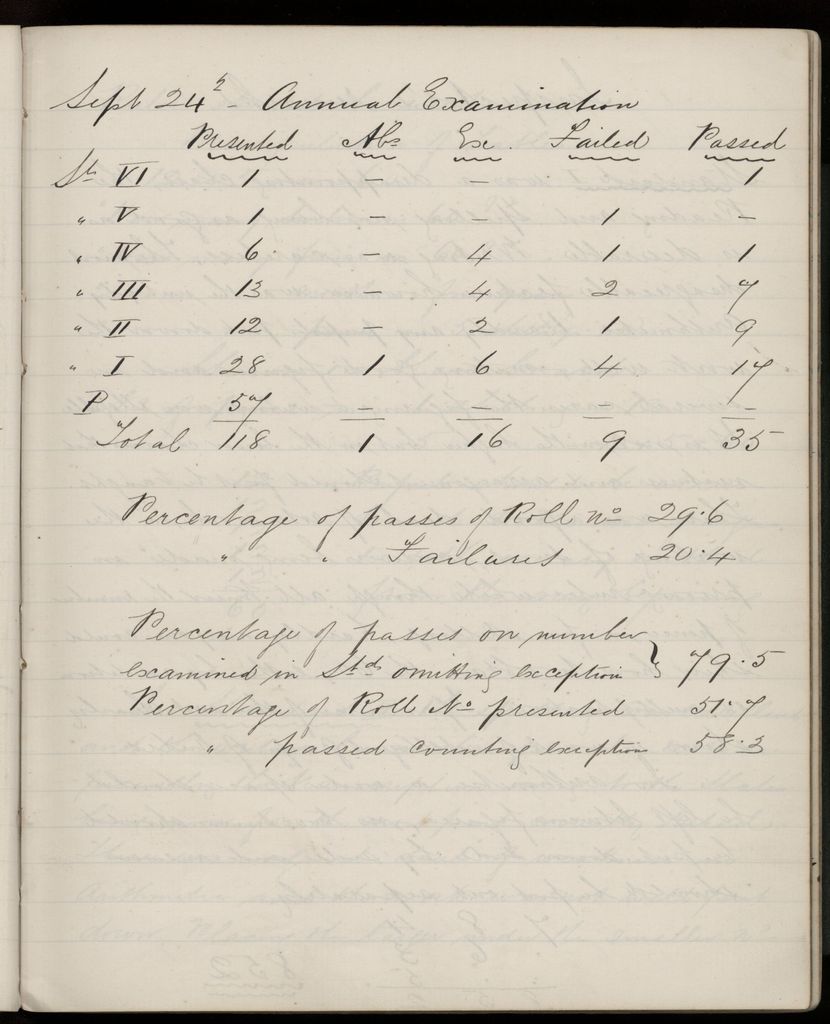 Sept 24th - Annual Examination
Presented Abs Ex. Failed Passed
St VI 1 — — 1
" V 1 — — 1 —
" IV 6 — 4 1 1
" III 13 — 4 2 7
" II 12 — 2 1 9
" I 28 1 6 4 17
P 57 — — — —
Total 118 1 16 9 35
Percentage of passes of Roll No 29.6
" " Failures 20.4
Percentage of passes on number
examined in Stds omitting exception } 79.5
Percentage of Roll No presented 51.7
" passed counting exception 58.3